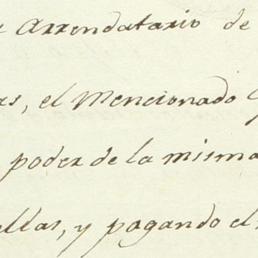 Arrendatario de
el Mencionado
poder de la misma
y pagando el